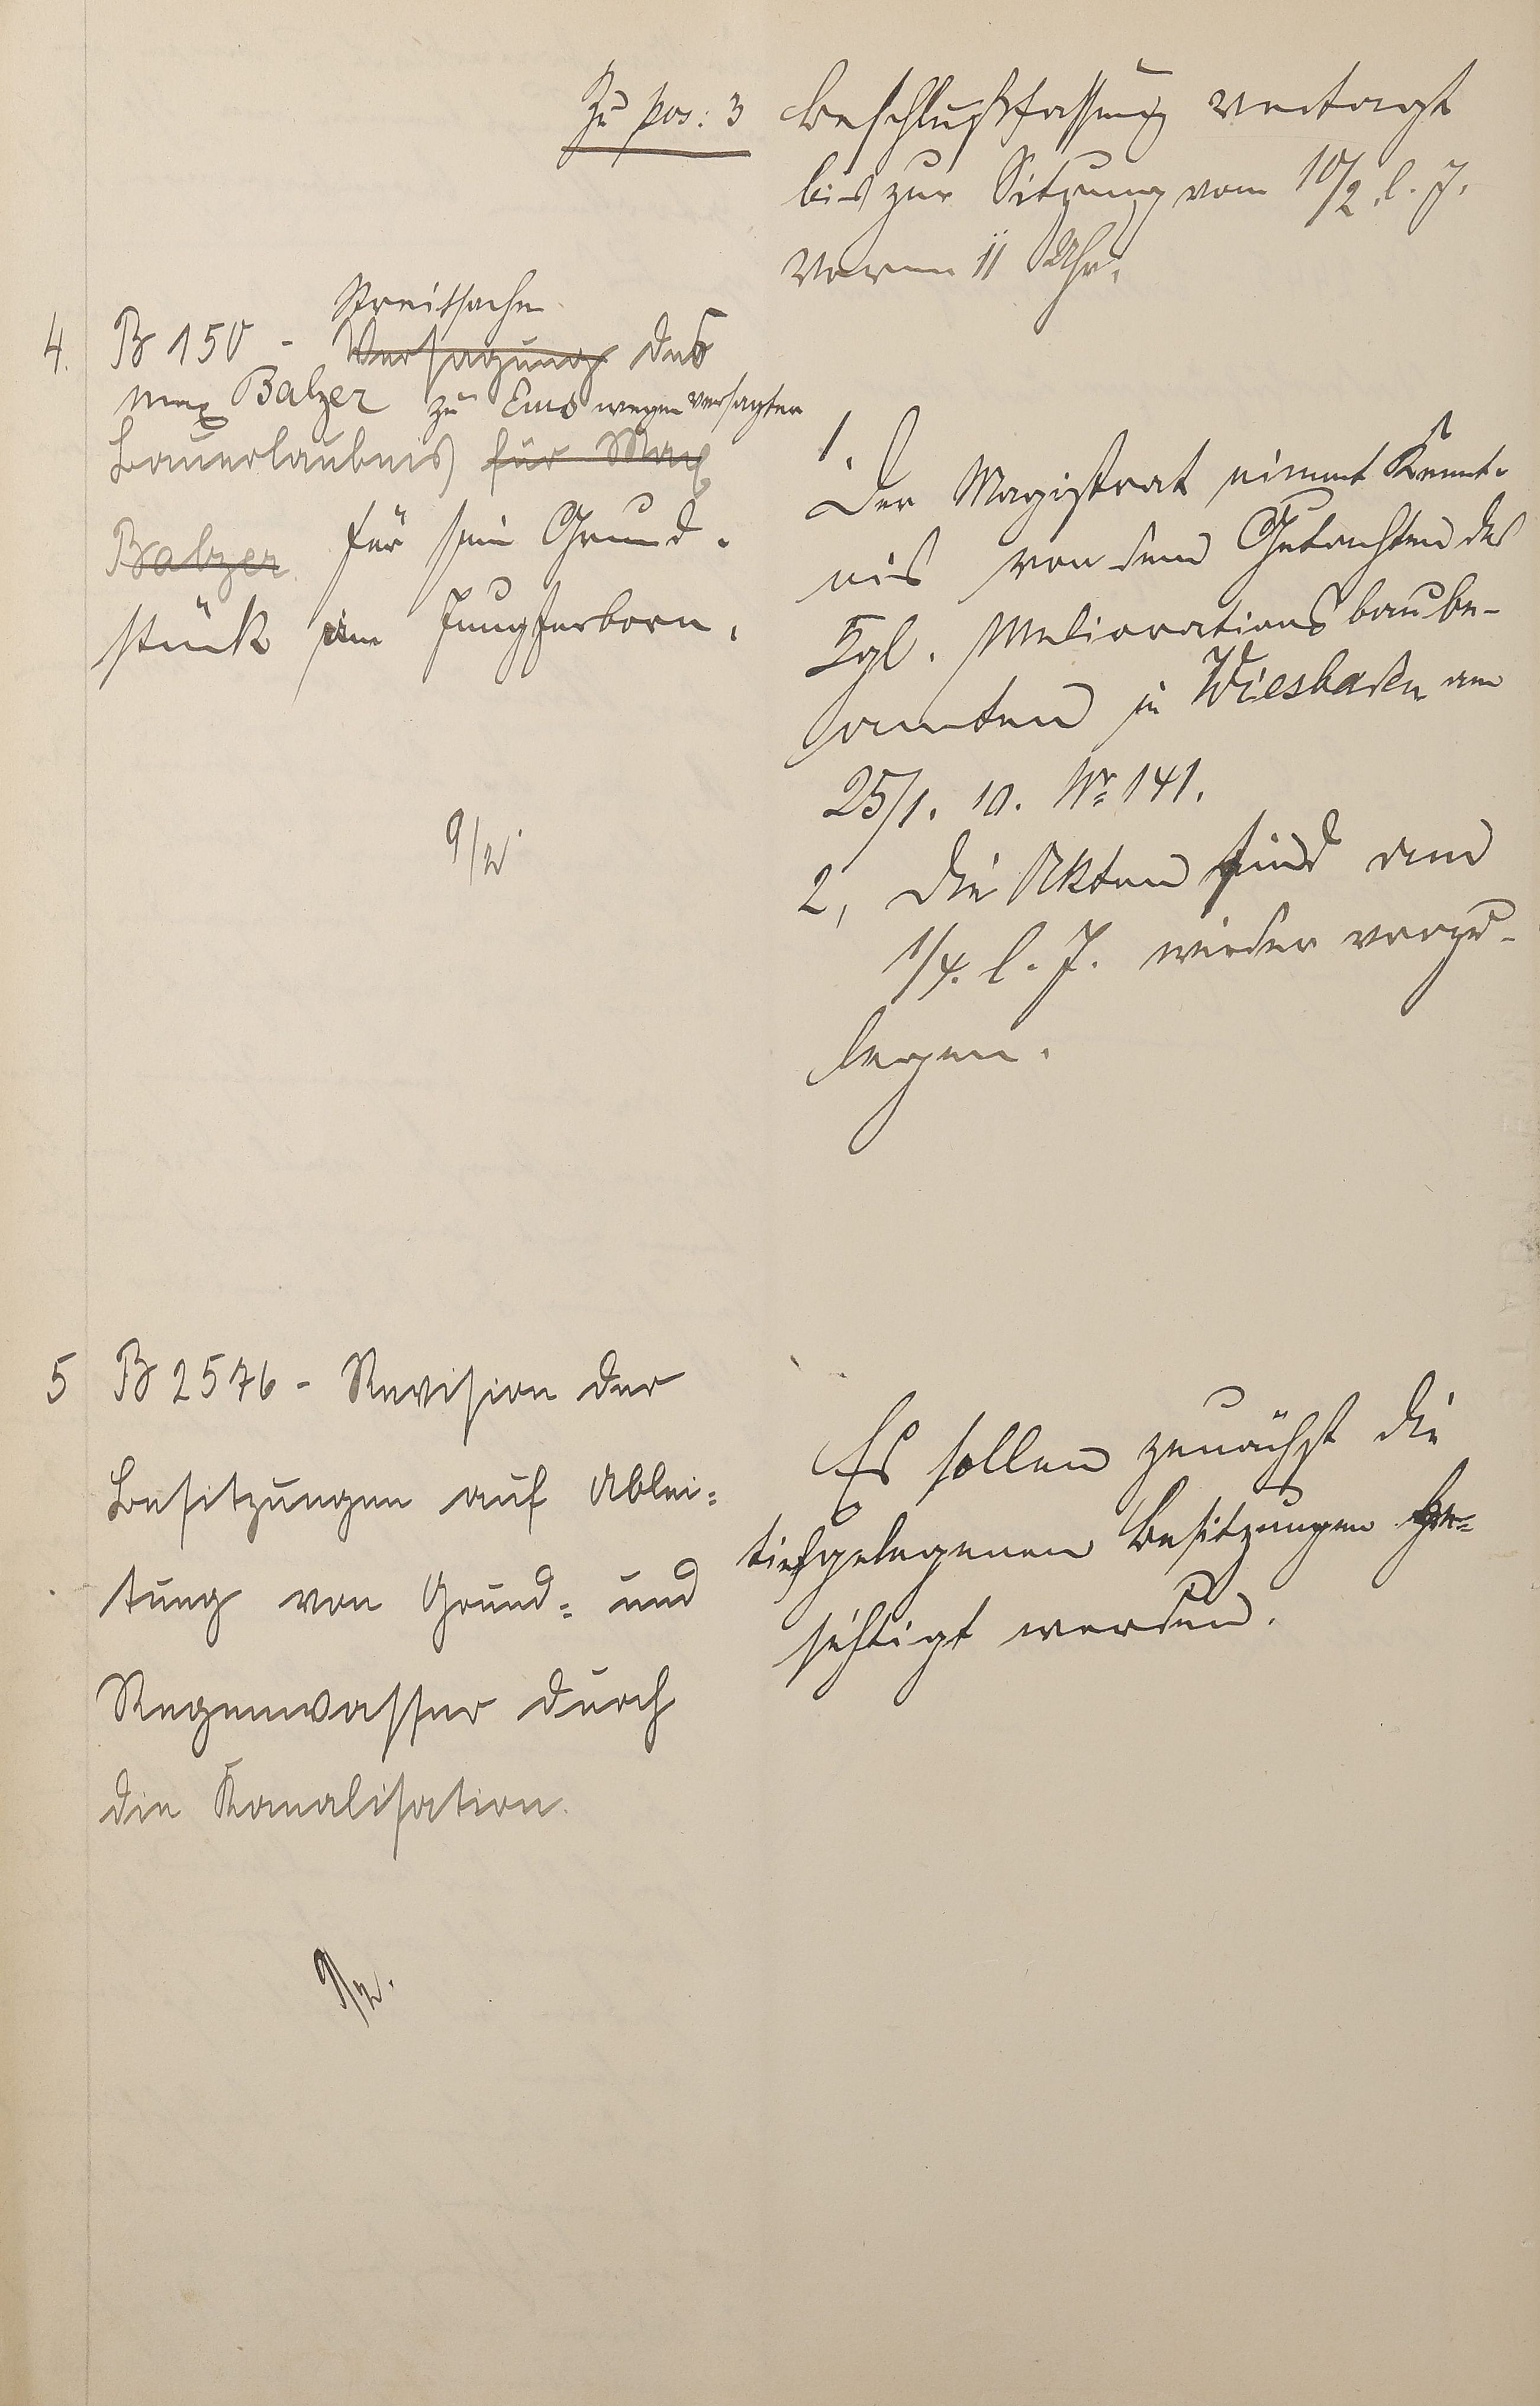 Zu pos: 3 Beschlußfassung vertagt
bis zur Sitzung vom 10/2. l. J.
Vorm 11 Uhr.
4. B 150 - Streitsache Versagung des
Max Balzer zu Ems wegen versagter
Bauerlaubnis für Max
Balzer für sein Grund-
stück im Jungferborn.
9/2.
1.
Der Magistrat nimmt Kennt-
nis von dem Gutachten des
Kgl. Meliorationsbaube-
amten in Wiesbaden vom
25/1. 10. Nr 141.
2, Die Akten sind am
1/4. l. J. wieder vorzu-
legen.
5 B 2576 - Revision der
Besitzungen auf Ablei-
tung von Grund- und
Regenwasser durch
die Kanalisation.
9/2.
Es sollen zunächst die
tiefgelegenen Besitzungen be-
sichtigt werden.